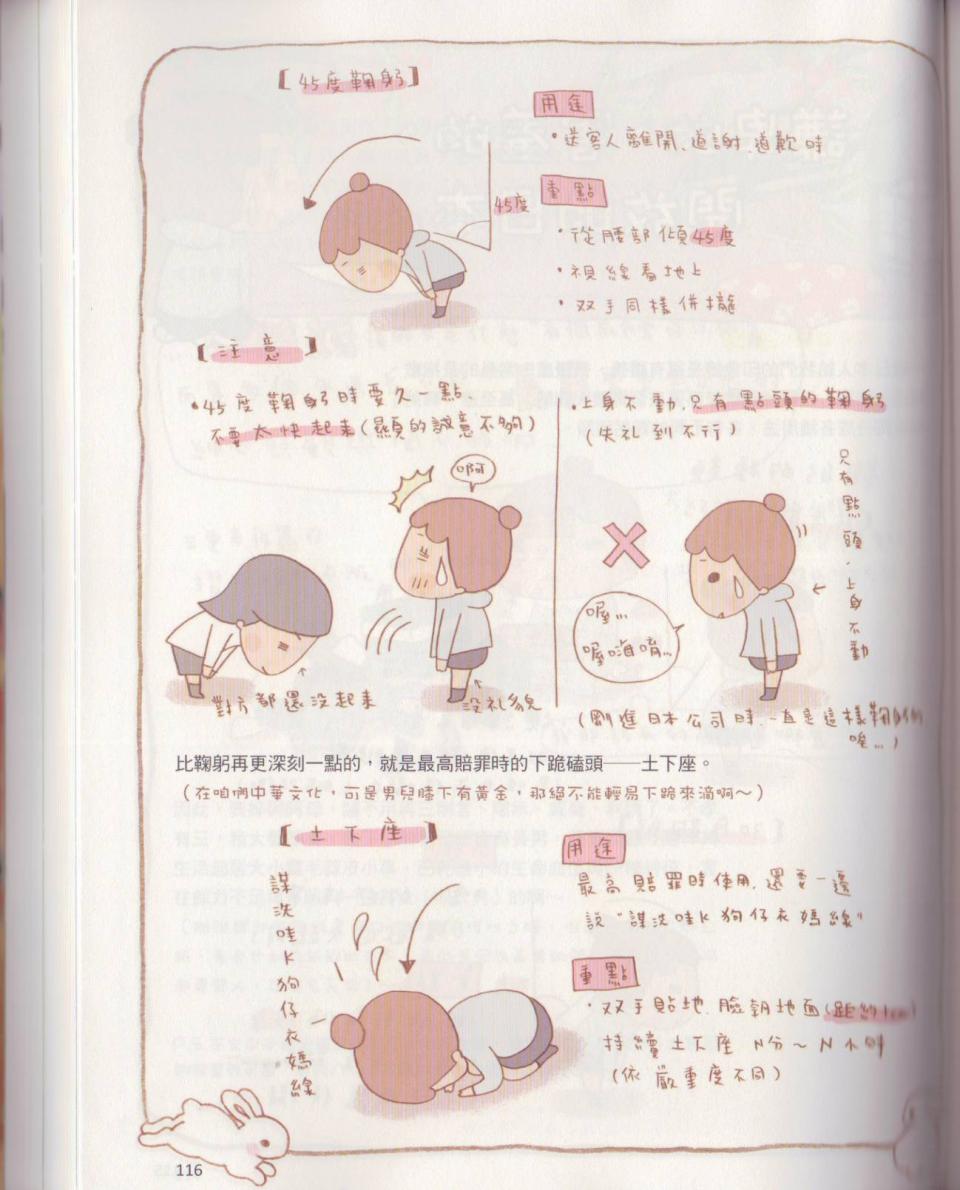 【45度鞠躬】
用途
・送客人離開、道謝、道歉時
45度
重點
・從腰部傾45度
・視線看地上
・双手同樣併攏
【注意】
・45度鞠躬時要久一點
不要太快起來(顯的誠意不夠)
啊
對方都還沒起來
沒礼貌
・上身不動,只有點頭的鞠躬
(失礼到不行)
只有點頭,上身不動
喔…
喔嗨唷…
(剛進日本公司時,一直是這樣鞠躬的
唉…)
比鞠躬再更深刻一點的,就是最高賠罪時的下跪磕頭──土下座。
(在咱們中華文化,可是男兒膝下有黃金,那絕不能輕易下跪來滴啊~)
【土下座】
謀洗哇K狗仔衣媽線
用途
最高賠罪時使用,還要一邊
說"謀洗哇K狗仔衣媽線"
重點
・双手貼地,臉朝地面(距約1cm)
持續土下座 N分~N小時
(依嚴重度不同)
116